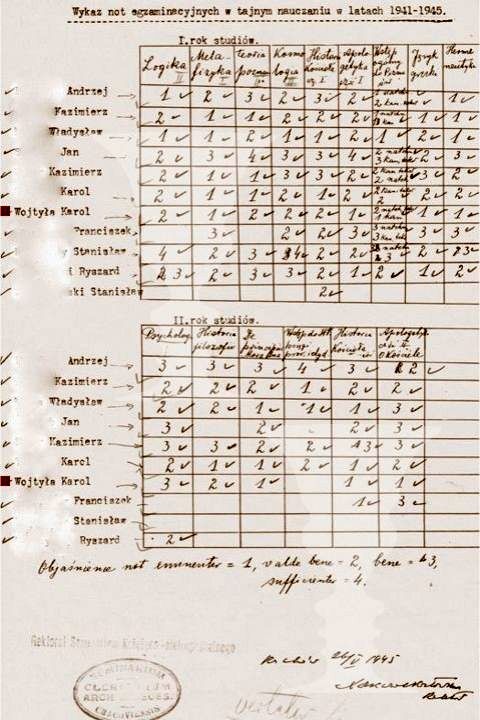 Wykaz not egzaminacyjnych w tajnym nauczaniu w latach 1941-1945.
I.rok studiów.
Logika II Metafizyka I teoria pozn. Kosmologia III Historia Kościoła cz. I Apologetyka cz. I Wstęp ogólny do Pisma Język grecki Hermeneutyka
Andrzej 1 2 3 2 3 2 1
Kazimierz 2 1 1 2 2 2 1 1
Władysław 1 1 2 1 1 2 1 2 1
Jan 2 3 4 3 3 4 2 3
Kazimierz 2 1 1 3 3 2 3 2
Karol 2 1 1 2 1 2 2 2 2
Wojtyła Karol 2 1 2 2 2 1 1 1
Franciszek 3 2 2 3 3 3
Stanisław 4 2 3 2
i Ryszard 3 2 3 3 2 1 2 1 2
ski Stanisław 2
II.rok studiów.
Psycholog. Historia filozofii De principiis Historia Kościoła Apologetyk o Kościele
Andrzej 3 3 3 4 3 2
Kazimierz 2 2 2 1 2 2
Władysław 2 2 1 1 1 3
Jan 3 2 2 3
Kazimierz 3 3 2 2 3 2
Karol 2 1 1 2 1 2
Wojtyła Karol 3 2 1 1 1
Franciszek 1 3
Stanisław
Ryszard 2
Objaśnienie not eminenter = 1, valde bene = 2, bene = 3,
sufficienter = 4.
Kraków 26/V 1945
SEMINARIUM
CLERICORUM
CRACOVIENSIS